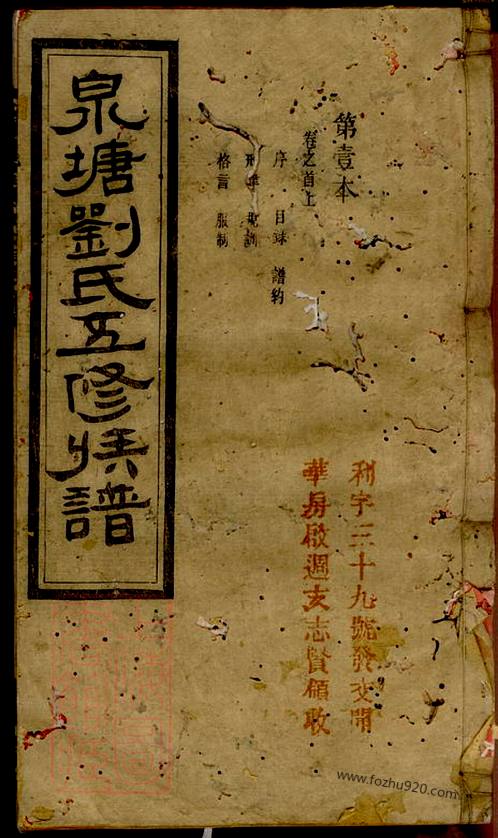 第壹本
卷之首上
序 目錄 譜約
刑律 規訓
格言 服制
泉塘劉氏五修族譜
利字三十九號發交開
華房啟週支志賢領收
www.fozhu920.com